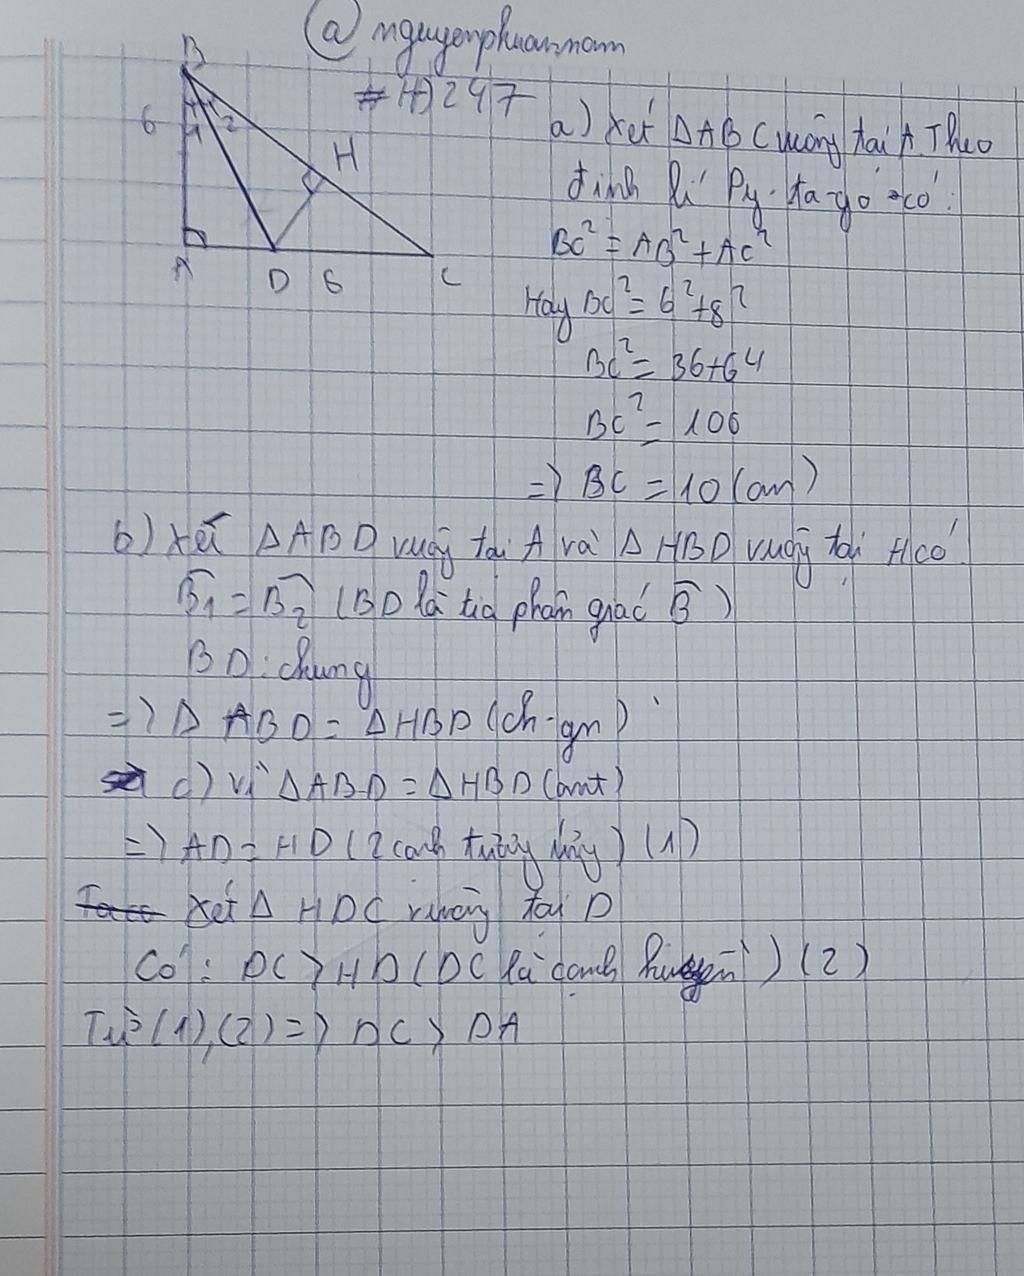 @ nguyenphuannam
# HD247
B
6
1 2
H
A D 6 C
a) Xét ΔABC vuông tại A. Theo
định lí Py-ta-go có:
BC² = AB² + AC²
Hay BC² = 6² + 8²
BC² = 36+64
BC² = 100
=> BC = 10 (cm)
b) Xét ΔABD vuông tại A và ΔHBD vuông tại H có
B₁ = B₂ (BD là tia phân giác B)
BD: chung
=> ΔABD = ΔHBD (ch-gn)
c) Vì ΔABD = ΔHBD (cmt)
=> AD = HD (2 cạnh tương ứng) (1)
Xét ΔHDC vuông tại D
Có: DC > HD (DC là cạnh huyền) (2)
Từ (1), (2) => DC > DA